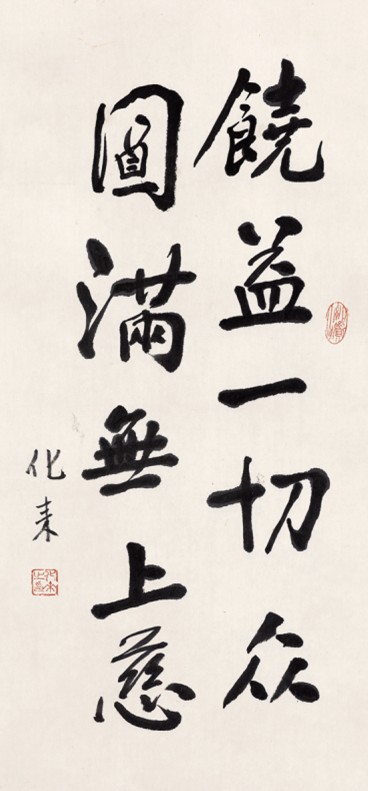 饒益一切众
圓滿無上慈
化耒